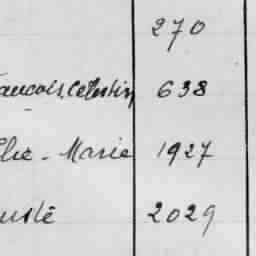 270
ancois Celestin 638
lie - Marie 1927
usté 2029